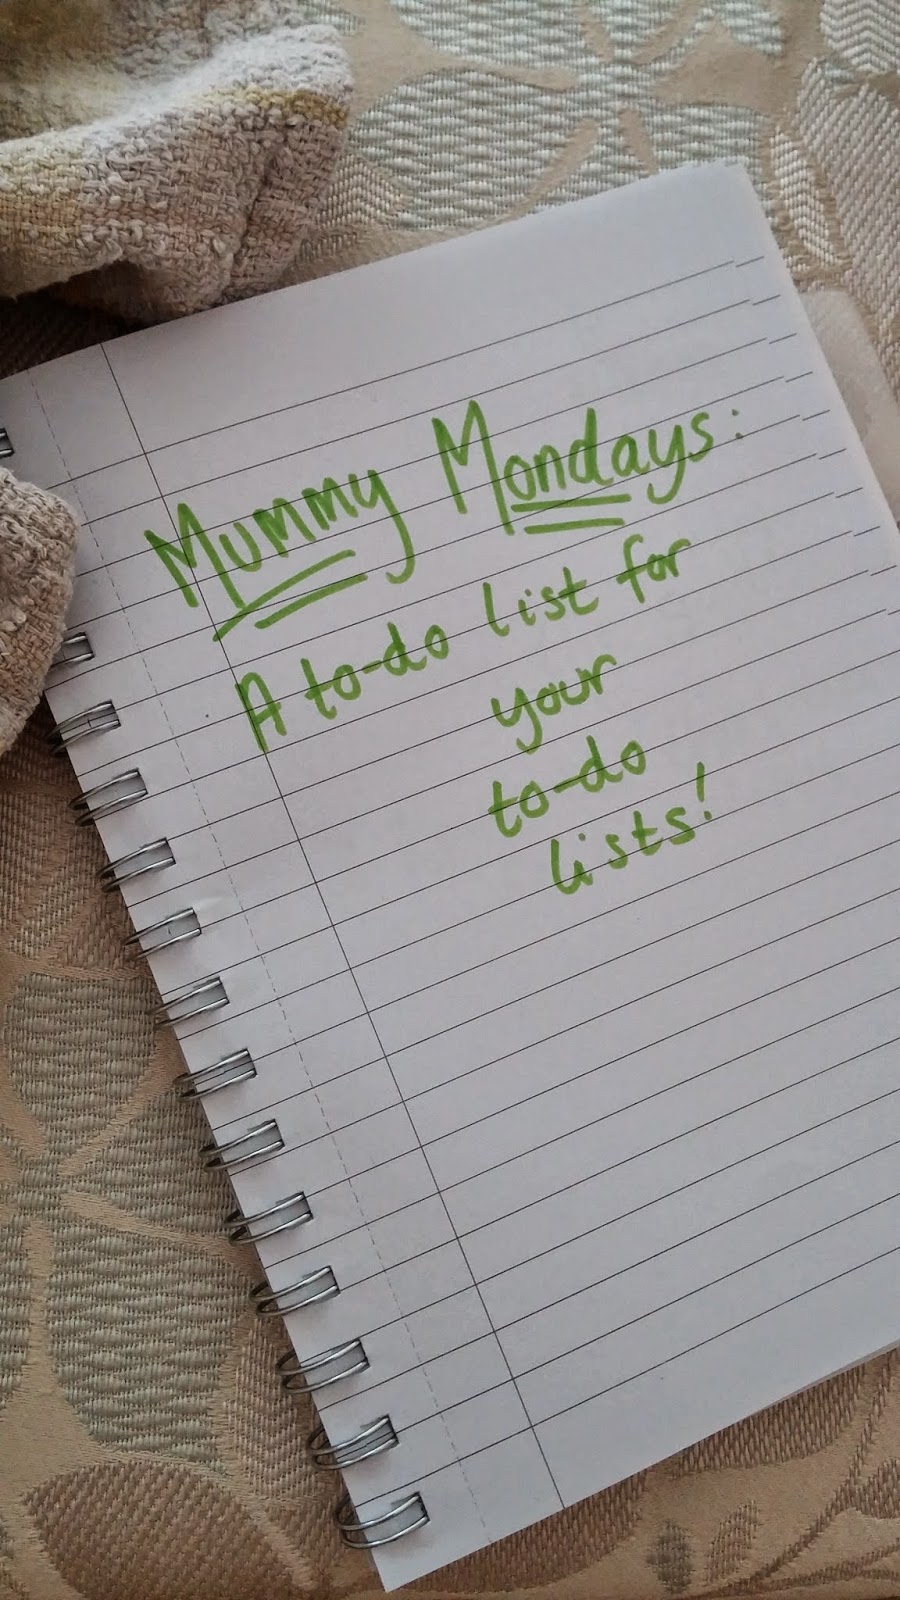 Mummy Mondays:
A to-do list for
your
to-do
lists!